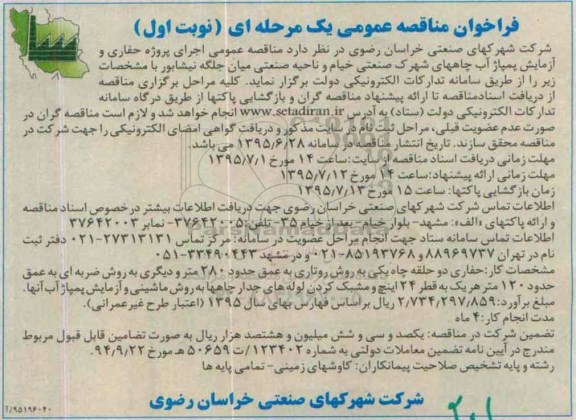 فراخوان مناقصه عمومی یک مرحله ای (نوبت اول)
شرکت شهرکهای صنعتی خراسان رضوی در نظر دارد مناقصه عمومی اجرای پروژه حفاری و
آزمایش پمپاژ آب چاههای شهرک صنعتی خیام و ناحیه صنعتی میان جلگه نیشابور با مشخصات
زیر را از طریق سامانه تدارکات الکترونیکی دولت برگزار نماید. کلیه مراحل برگزاری مناقصه
از دریافت اسنادمناقصه تا ارائه پیشنهاد مناقصه گران و بازگشایی پاکتها از طریق درگاه سامانه
تدارکات الکترونیکی دولت (ستاد) به آدرس www.setadiran.ir انجام خواهد شد و لازم است مناقصه گران در
صورت عدم عضویت قبلی، مراحل ثبت نام در سایت مذکور و دریافت گواهی امضای الکترونیکی را جهت شرکت در
مناقصه محقق سازند. تاریخ انتشار مناقصه در سامانه ۱۳۹۵/۶/۲۸ می باشد.
مهلت زمانی دریافت اسناد مناقصه از سایت: ساعت ۱۴ مورخ ۱۳۹۵/۷/۱
مهلت زمانی ارائه پیشنهاد: ساعت ۱۴ مورخ ۱۳۹۵/۷/۱۲
زمان بازگشایی پاکتها: ساعت ۱۵ مورخ ۱۳۹۵/۷/۱۳
اطلاعات تماس شرکت شهرکهای صنعتی خراسان رضوی جهت دریافت اطلاعات بیشتر در خصوص اسناد مناقصه
و ارائه پاکتهای «الف»: مشهد- بلوار خیام- بعد از خیام ۳۵- تلفن: ۵-۳۷۶۴۲۰۰۰ - نمابر ۳۷۶۴۲۰۰۳
اطلاعات تماس سامانه ستاد جهت انجام مراحل عضویت در سامانه: مرکز تماس ۲۷۳۱۳۱۳۱-۰۲۱ دفتر ثبت
نام در تهران ۸۸۹۶۹۷۳۷ و ۸۵۱۹۳۷۶۸-۰۲۱ و در مشهد ۳۳۴۹۰۴۴۳-۰۵۱
مشخصات کار: حفاری دو حلقه چاه یکی به روش روتاری به عمق حدود ۲۸۰ متر و دیگری به روش ضربه ای به عمق
حدود ۱۲۰ متر هر یک به قطر ۲۴ اینچ و مشبک کردن لوله های جدار چاهها به روش ماشینی و آزمایش پمپاژ آب آنها.
مبلغ برآورد: ۲/۷۳۴/۲۹۷/۸۵۹ ریال بر اساس فهارس بهای سال ۱۳۹۵ (اعتبار طرح غیرعمرانی).
مدت انجام کار: ۴ ماه
تضمین شرکت در مناقصه: یکصد و سی و شش میلیون و هشتصد هزار ریال به صورت تضامین قابل قبول مربوط
مندرج در آیین نامه تضمین معاملات دولتی به شماره ۱۲۳۴۰۲/ت ۵۰۶۵۹ هـ مورخ ۹۴/۹/۲۲.
رشته و پایه تشخیص صلاحیت پیمانکاران: کاوشهای زمینی- تمامی پایه ها
شرکت شهرکهای صنعتی خراسان رضوی